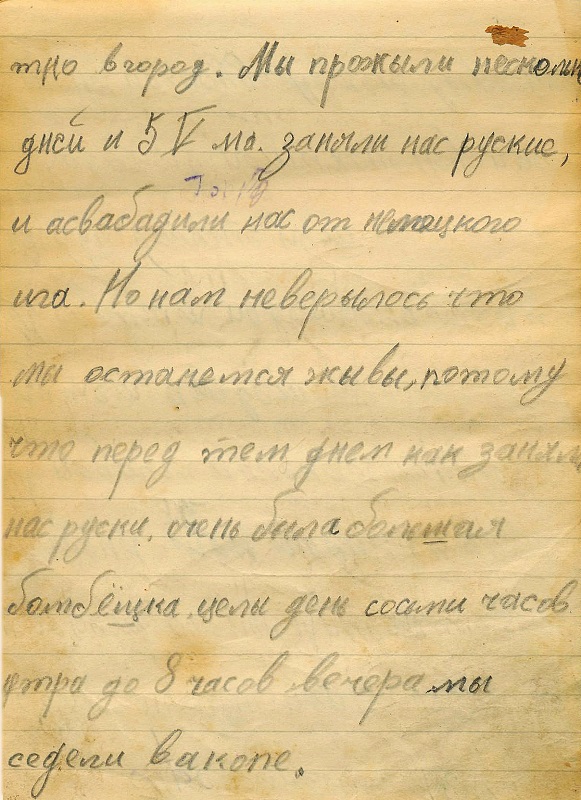 тно в город. Мы прожыли несколк
дней и 5 V мa. заняли нас руские,
и асвабадили нас от немецкого
ига. Но нам неверылось что
мы останемся жывы, потому
что перед тем днем как заняли
нас руски, очень была большая
бомбёшка, целы день сосьми часов
утра до 8 часов вечера мы
седели вакопе.